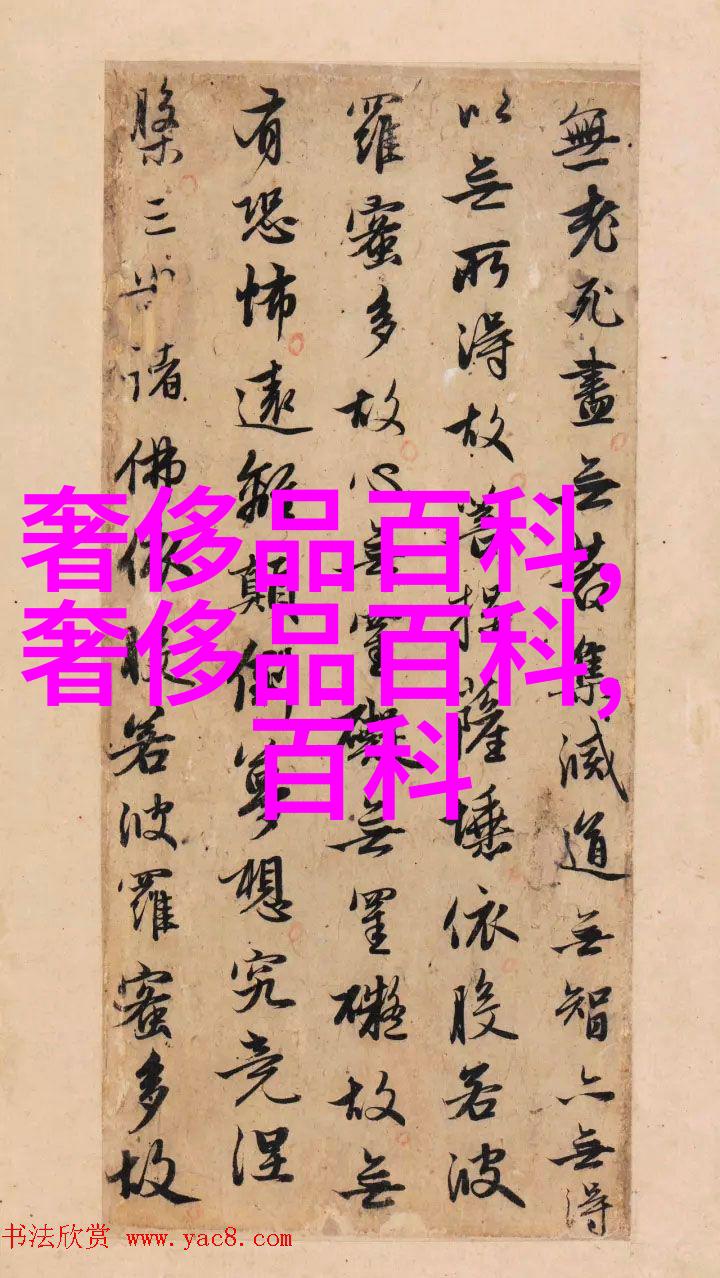 無老死盡无苦集滅道无智亦无得
以无所得故菩提薩埵依般若波
羅蜜多故心无罣礙无罣礙故无
有恐怖遠離顛倒夢想究竟涅
槃三世諸佛依般若波羅蜜多故
奢侈品百科,
奢侈品百科,
百科
书法欣赏 www.yac8.com